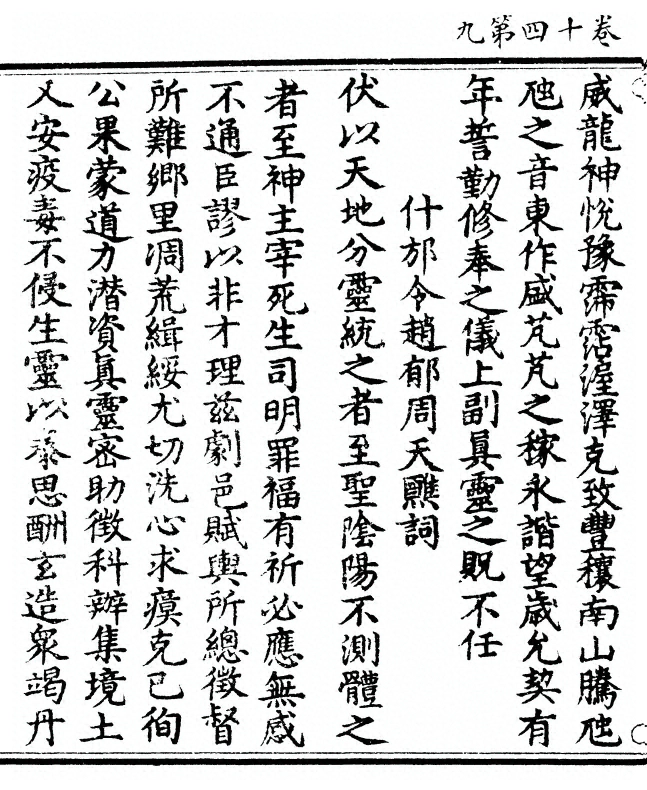 九第四十卷
威龍神悅豫霈霑渥澤克致豐穰南山騰虺
虺之音東作盛芃芃之稼永諧望歲允契有
年誓勤修奉之儀上副眞靈之貺不任
什邡令趙郁周天醮詞
伏以天地分靈統之者至聖陰陽不測體之
者至神主宰死生司明罪福有祈必應無感
不通臣謬以非才理兹劇邑賦輿所總徵督
所難鄉里凋荒緝綏尤切洗心求瘼克已徇
公果蒙道力潛資眞靈密助徵科辦集境土
乂安疫毒不侵生靈以泰思酬玄造衆竭丹